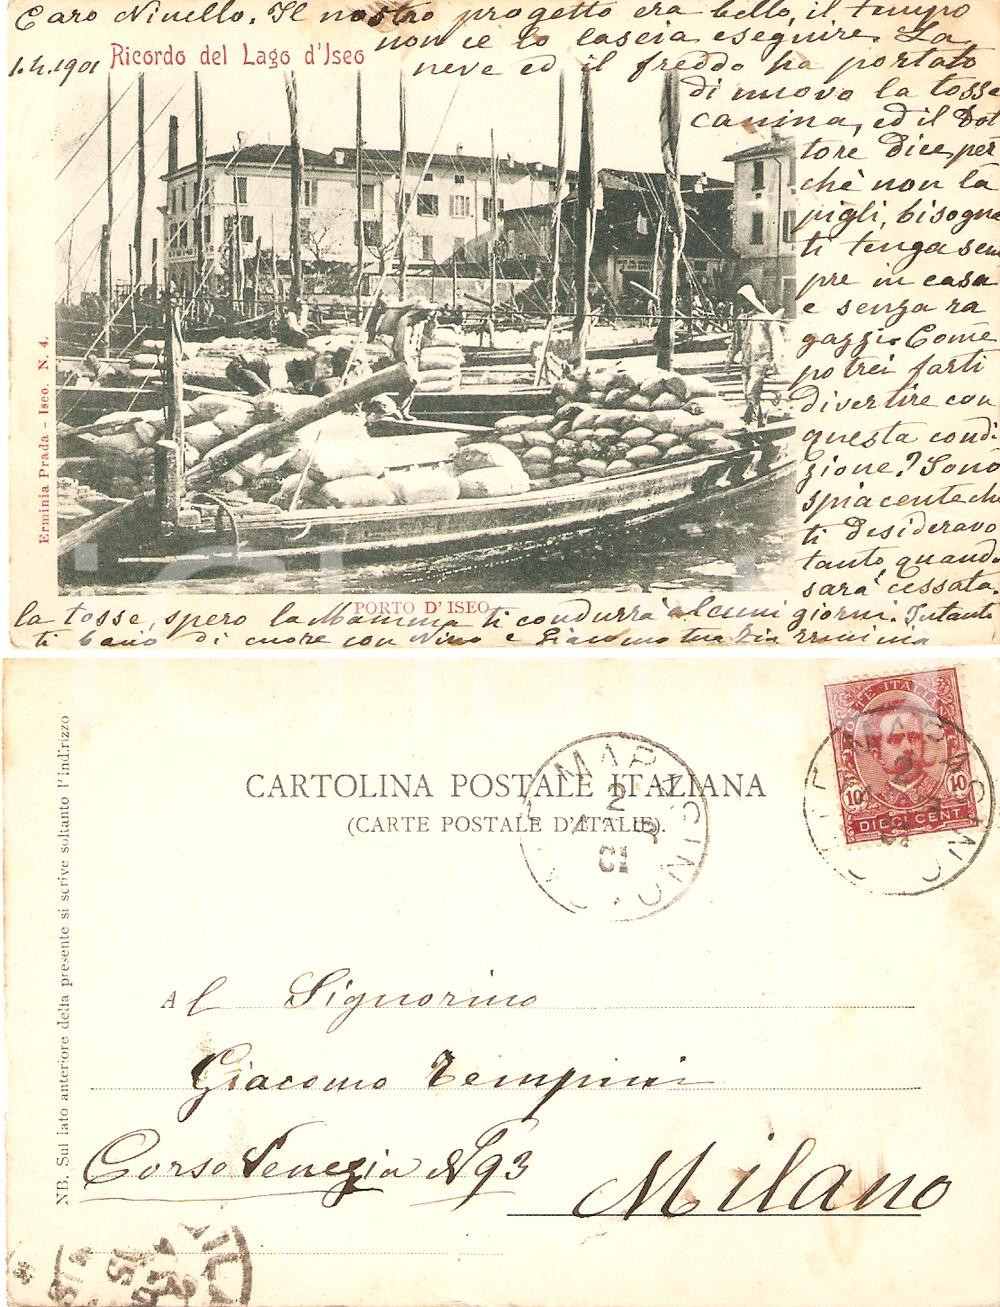 Caro Ninello. Il nostro progetto era bello, il tempo
non ce lo lascia eseguire. La
1.4.1901
Ricordo del Lago d'Iseo
neve ed il freddo ha portato
di nuovo la tosse
canina, ed il Dot
tore dice, per
chè non la
pigli, bisogna
ti tenga sem
pre in casa
e senza ra
gazzi. Come
potrei farti
divertire con
questa condi
zione? Sono
spiacente ch
ti desideravo
tanto, quand
sarà cessata
Erminia Prada - Iseo. N. 4.
PORTO D' ISEO
la tosse, spero la Mamma ti condurrà alcuni giorni. Intanto
ti bacio di cuore con Nino e Giacomo tua zia Erminia
CARTOLINA POSTALE ITALIANA
(CARTE POSTALE D'ITALIE).
NB. Sul lato anteriore della presente si scrive soltanto l'indirizzo
POSTE ITALIANE
10 10
DIECI CENT.
2
01
2
Al Signorino
Giacomo Tempini
Corso Venezia N 93
Milano